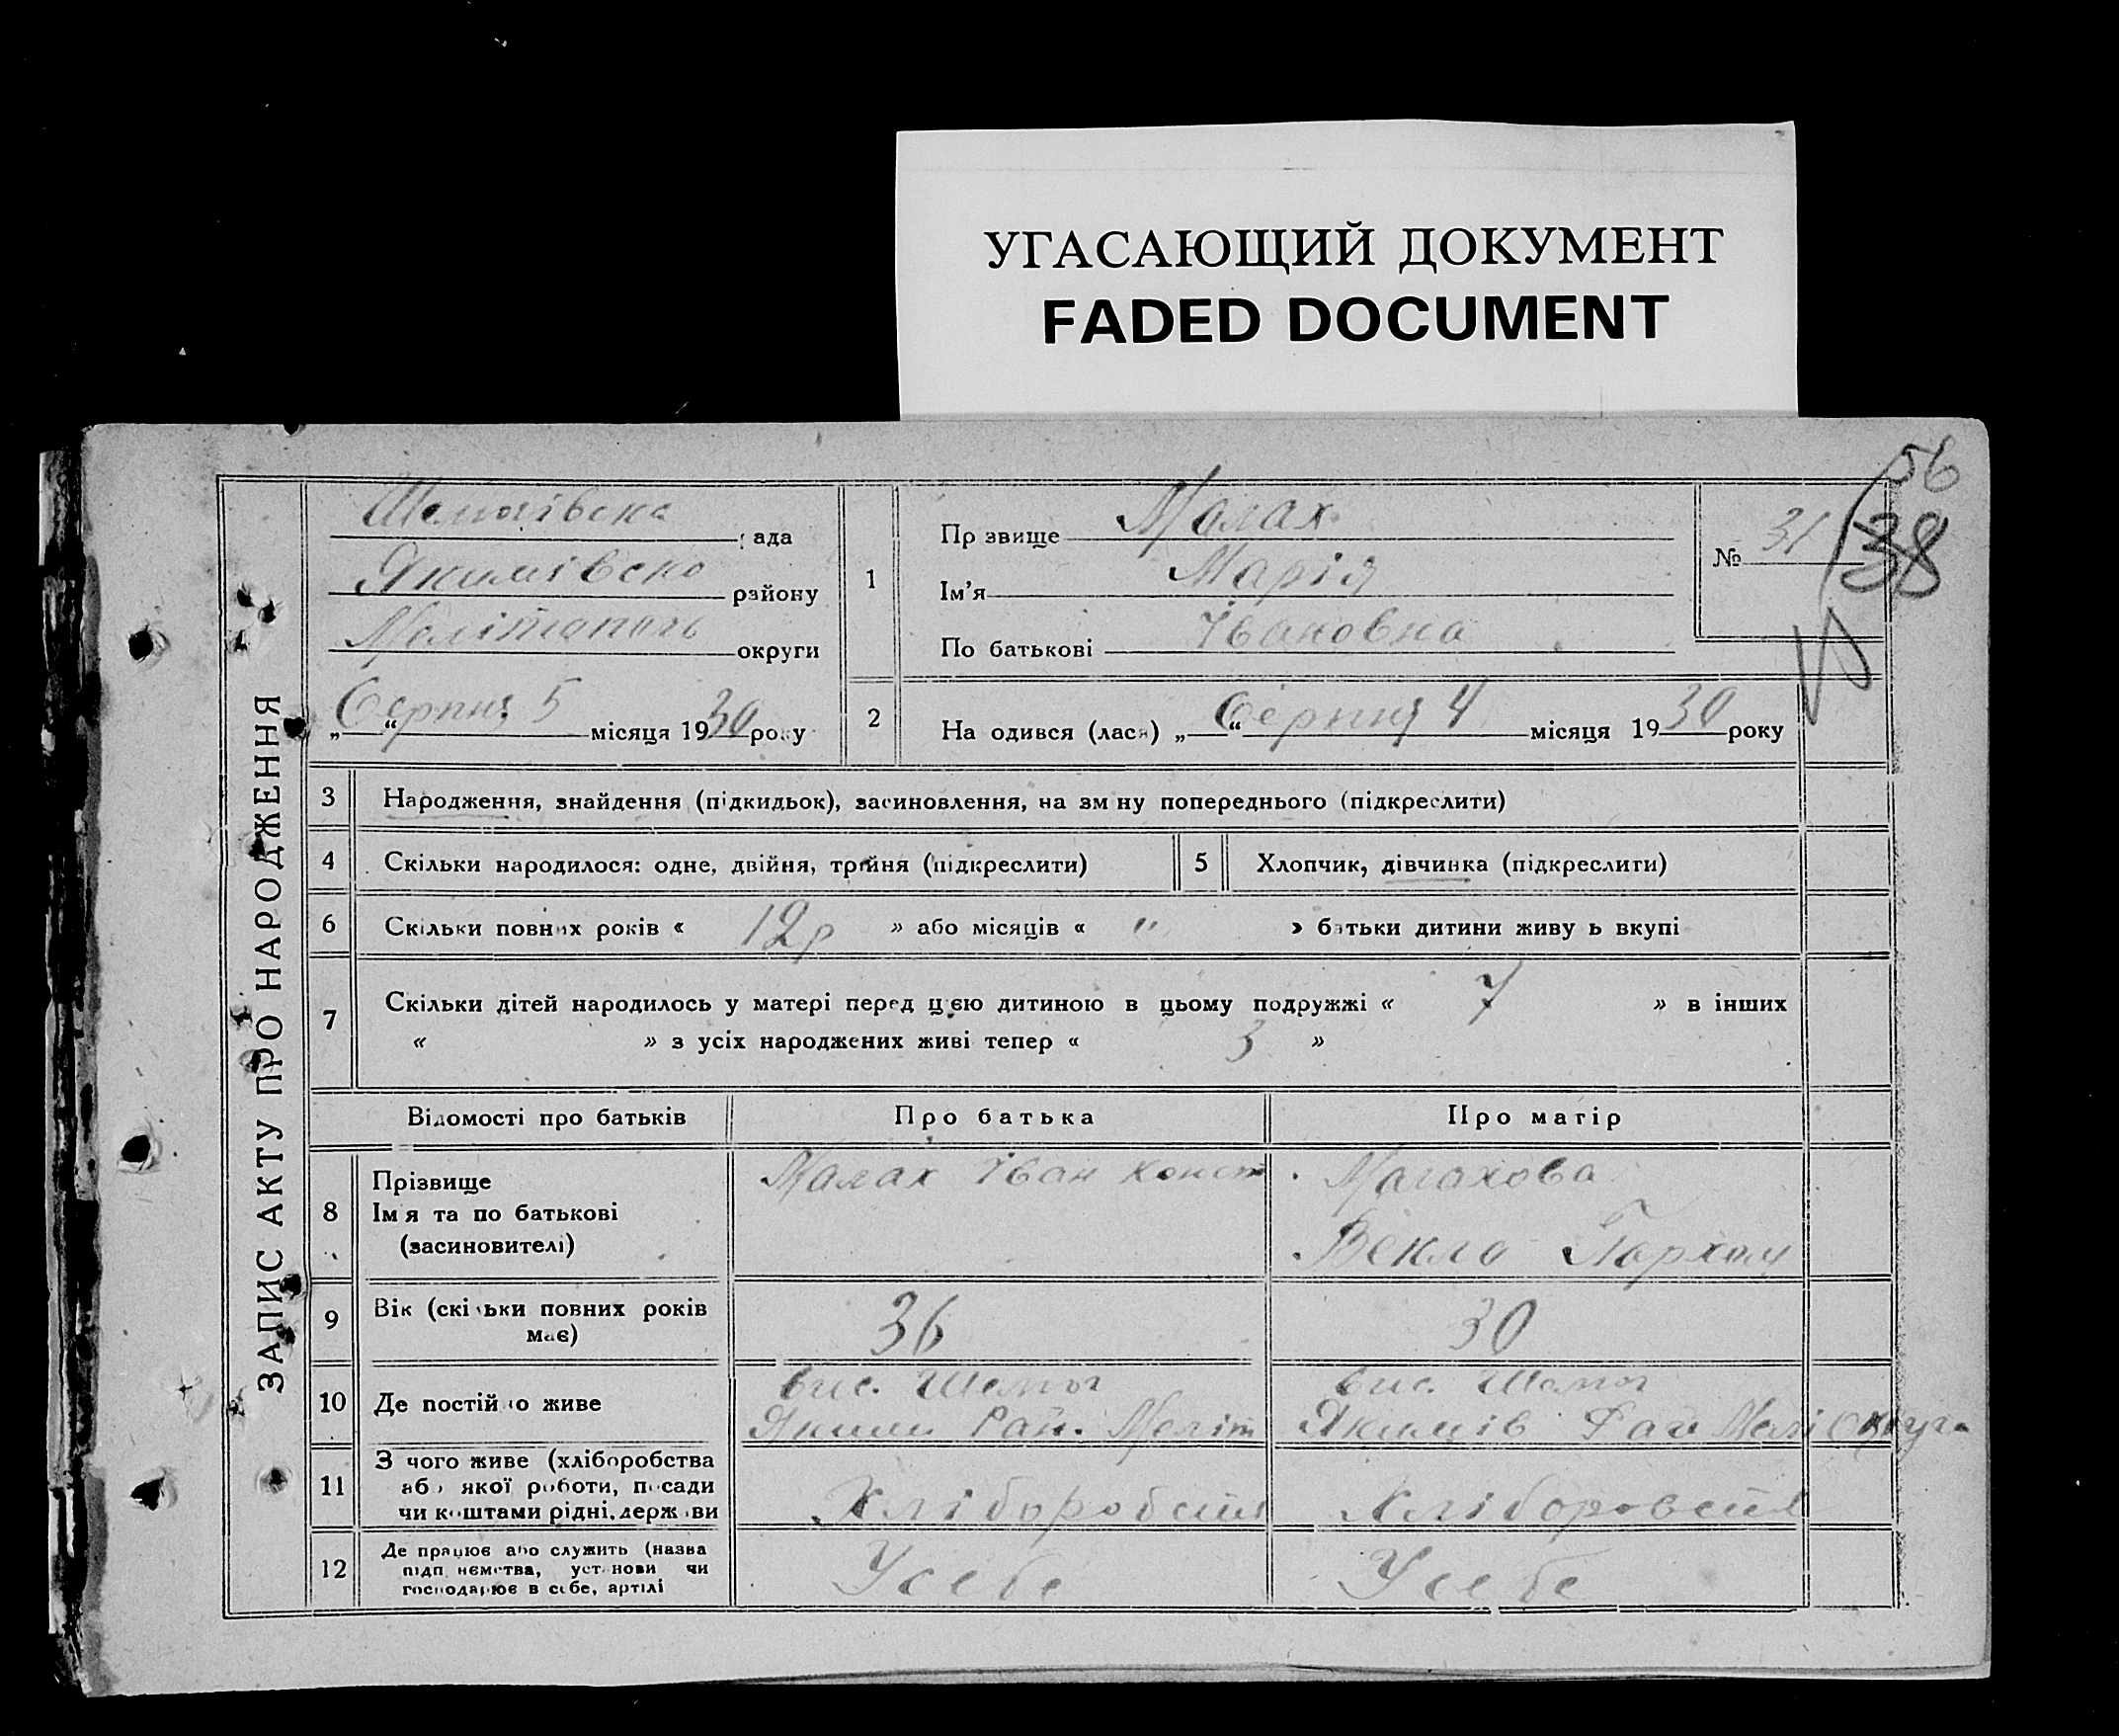 УГАСАЮЩИЙ ДОКУМЕНТ
FADED DOCUMENT
56
38
ЗАПИС АКТУ ПРО НАРОДЖЕННЯ
ада
Якимівско району
округи
Серпня 5 місяця 1930 року
1
Пр звище Малах
Ім'я Марія
По батькові Івановна
№ 31
2
На одився (лася) „ “ Серпня 4 місяця 1930 року
3 Народження, знайдення (підкидьок), засиновлення, на зм ну попереднього (підкреслити)
4 Скільки народилося: одне, двійня, трійня (підкреслити)
5 Хлопчик, дівчинка (підкреслити)
6 Скільки повних років « 12р » або місяців « " » батьки дитини живу ь вкупі
7 Скільки дітей народилось у матері перед цією дитиною в цьому подружжі « 7 » в інших
« » з усіх народжених живі тепер « 3 »
Відомості про батьків
Про батька
Про матір
8
Прізвище
Ім я та по батькові
(засиновителі)
Малах Іван Конст
Малахова
Векла Пархом
9
Вік (скі ьки повних років
має)
36
30
10 Де постій о живе
вис. Шемот
Якими Рай. Меліт
вис.
Якимів Рай Мелі округа
11
З чого живе (хліборобства
або якої роботи, посади
чи коштами рідні, держ ви
Хліборобств
Хліборовств
12
Де працює або служить (назва
підп иємства, установи чи
господарює в себе, артілі
Усебе
Усебе